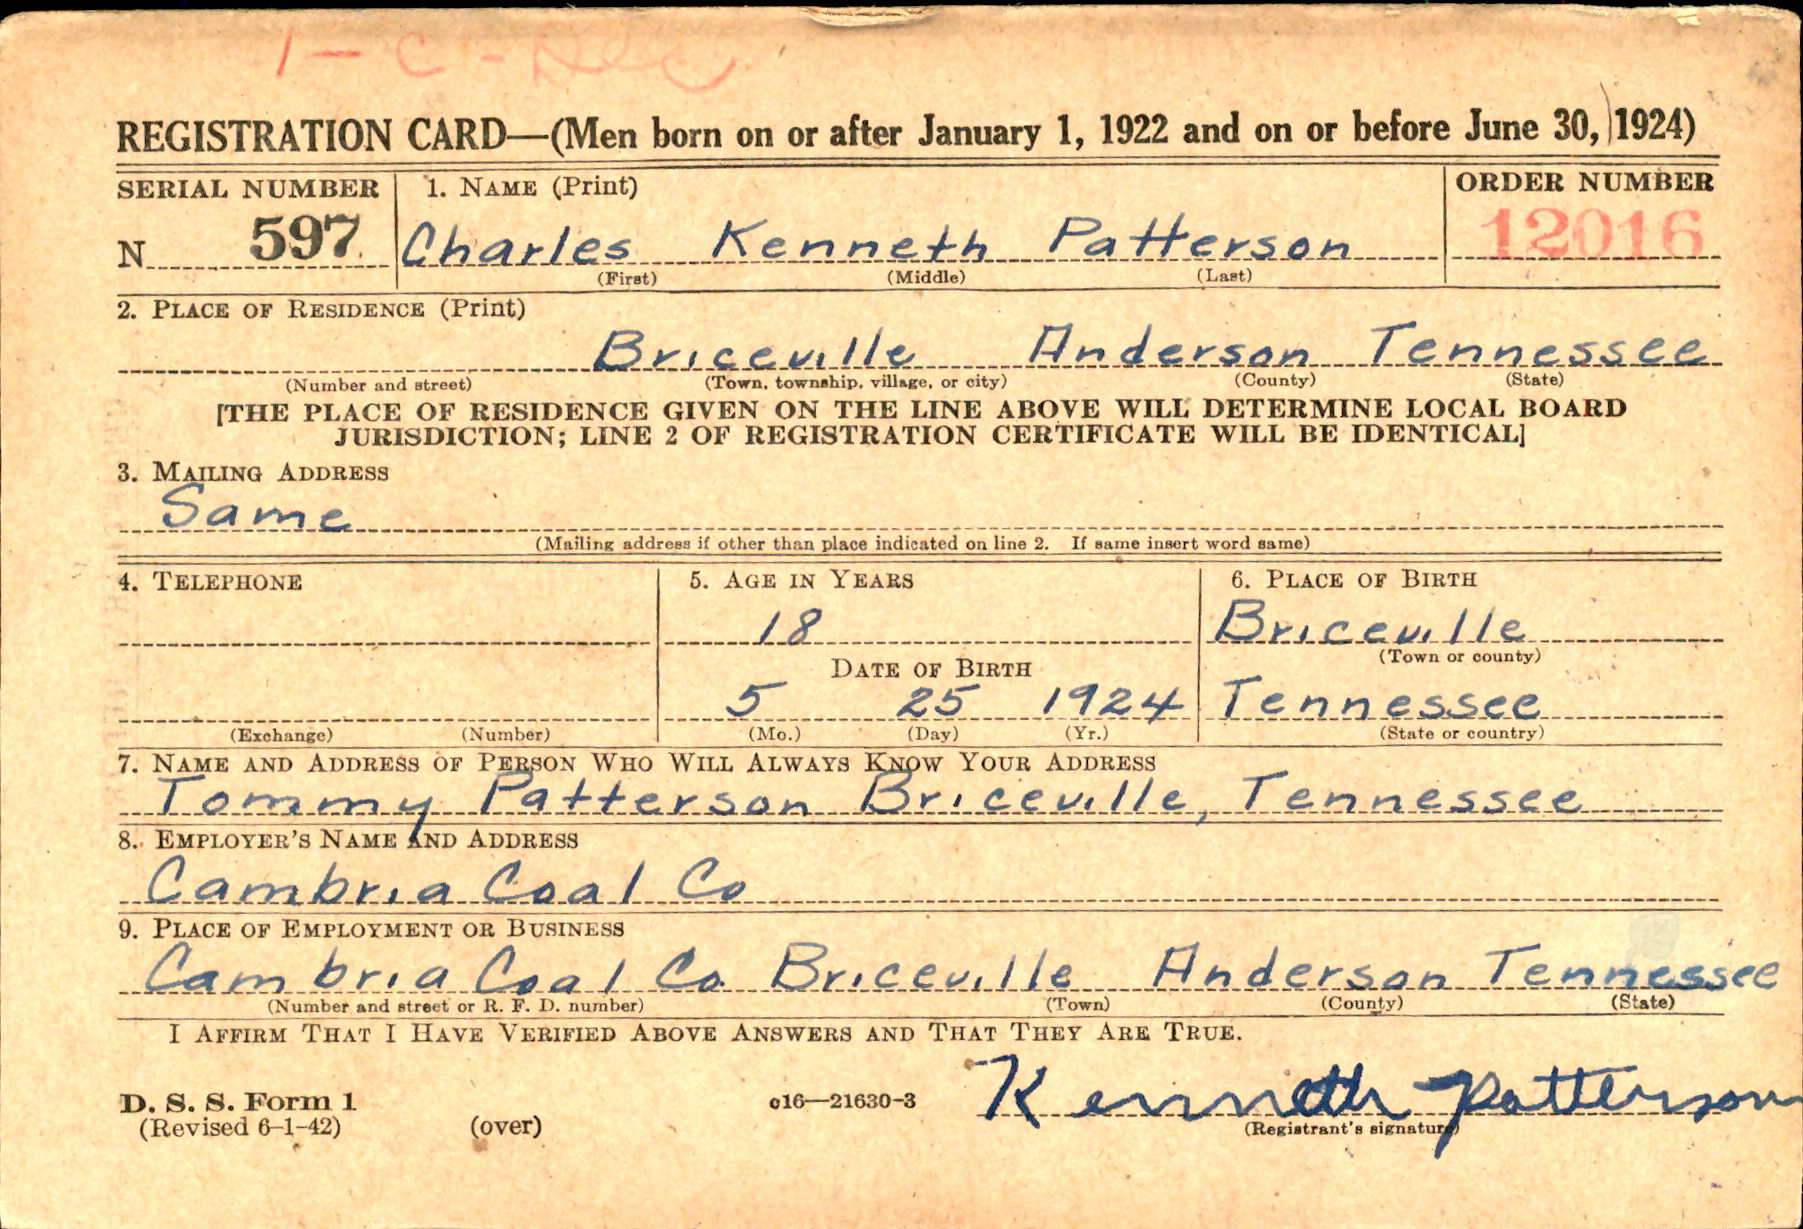 1-C-Dec
REGISTRATION CARD—(Men born on or after January 1, 1922 and on or before June 30, 1924)
SERIAL NUMBER 1. NAME (Print) ORDER NUMBER
N 597 Charles Kenneth Patterson 12016
(First) (Middle) (Last)
2. PLACE OF RESIDENCE (Print)
Briceville Anderson Tennessee
(Number and street) (Town, township, village, or city) (County) (State)
[THE PLACE OF RESIDENCE GIVEN ON THE LINE ABOVE WILL DETERMINE LOCAL BOARD
JURISDICTION; LINE 2 OF REGISTRATION CERTIFICATE WILL BE IDENTICAL]
3. MAILING ADDRESS
Same
(Mailing address if other than place indicated on line 2. If same insert word same)
4. TELEPHONE 5. AGE IN YEARS 6. PLACE OF BIRTH
18 Briceville
(Town or county)
DATE OF BIRTH
5 25 1924 Tennessee
(Exchange) (Number) (Mo.) (Day) (Yr.) (State or country)
7. NAME AND ADDRESS OF PERSON WHO WILL ALWAYS KNOW YOUR ADDRESS
Tommy Patterson Briceville, Tennessee
8. EMPLOYER'S NAME AND ADDRESS
Cambria Coal Co
9. PLACE OF EMPLOYMENT OR BUSINESS
Cambria Coal Co. Briceville Anderson Tennessee
(Number and street or R. F. D. number) (Town) (County) (State)
I AFFIRM THAT I HAVE VERIFIED ABOVE ANSWERS AND THAT THEY ARE TRUE.
D. S. S. Form 1
(Revised 6-1-42) (over) c16—21630-3 Kenneth Patterson
(Registrant's signature)